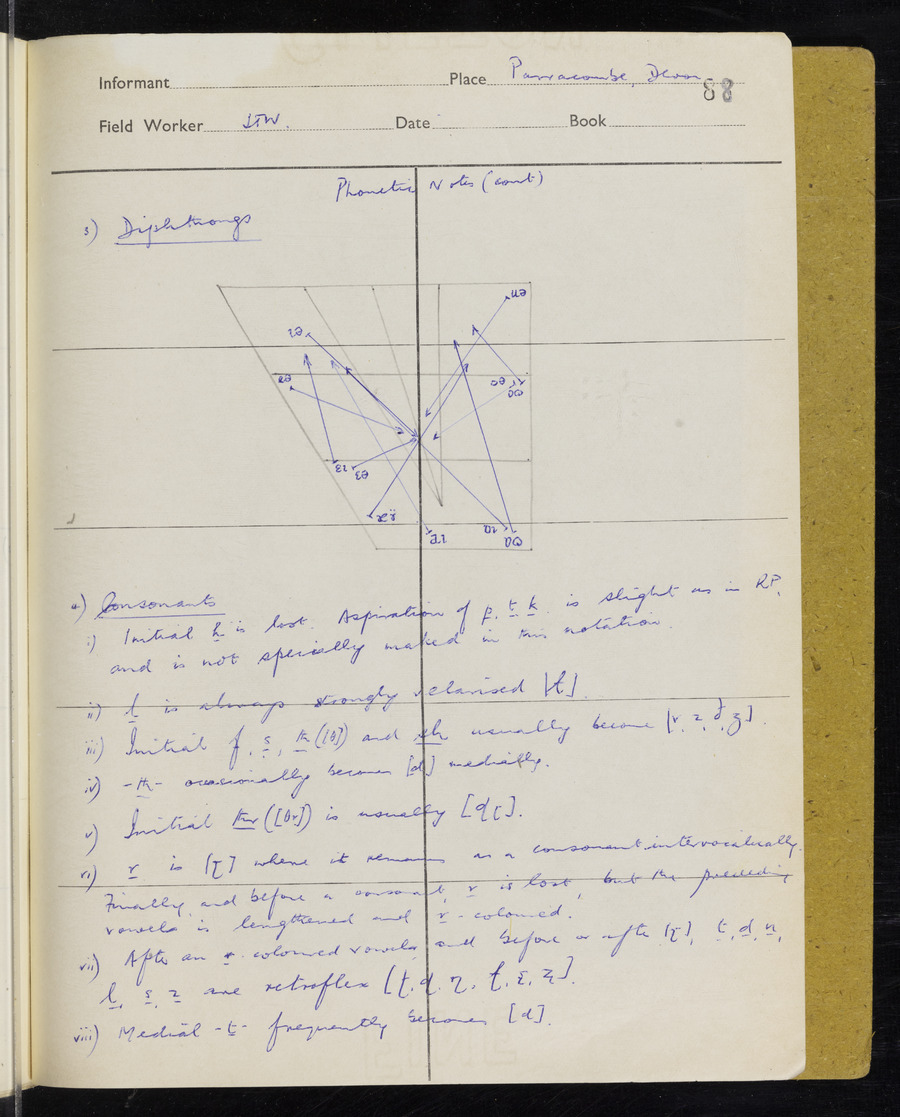 Informant Place Parracombe, Devon 88
Field Worker JTW. Date Book
Phonetic Notes (cont)
3) Diphthongs
4) Consonants
i) Initial h is lost. Aspiration of p, t, k is slight as in RP.
and is not specially marked in this notation.
ii) l is always strongly velarised [ɫ].
iii) Initial f, s, th ([θ]) and sh usually become [v, z, ð, ʒ].
iv) -th- occasionally becomes [d] medially.
v) Initial thr ([θr]) is usually [dɽ].
vi) r is [ɽ] where it remains as a consonant intervocalically.
Finally, and before a consonant, r is lost, but the preceding
vowels is lengthened and r-coloured.
vii) After an r-coloured vowels and before or after [ɽ], t, d, n,
l, s, z are retroflex [ʈ, ɖ, ɳ, ɭ, ʂ, ʐ].
viii) Medial -t- frequently becomes [d].